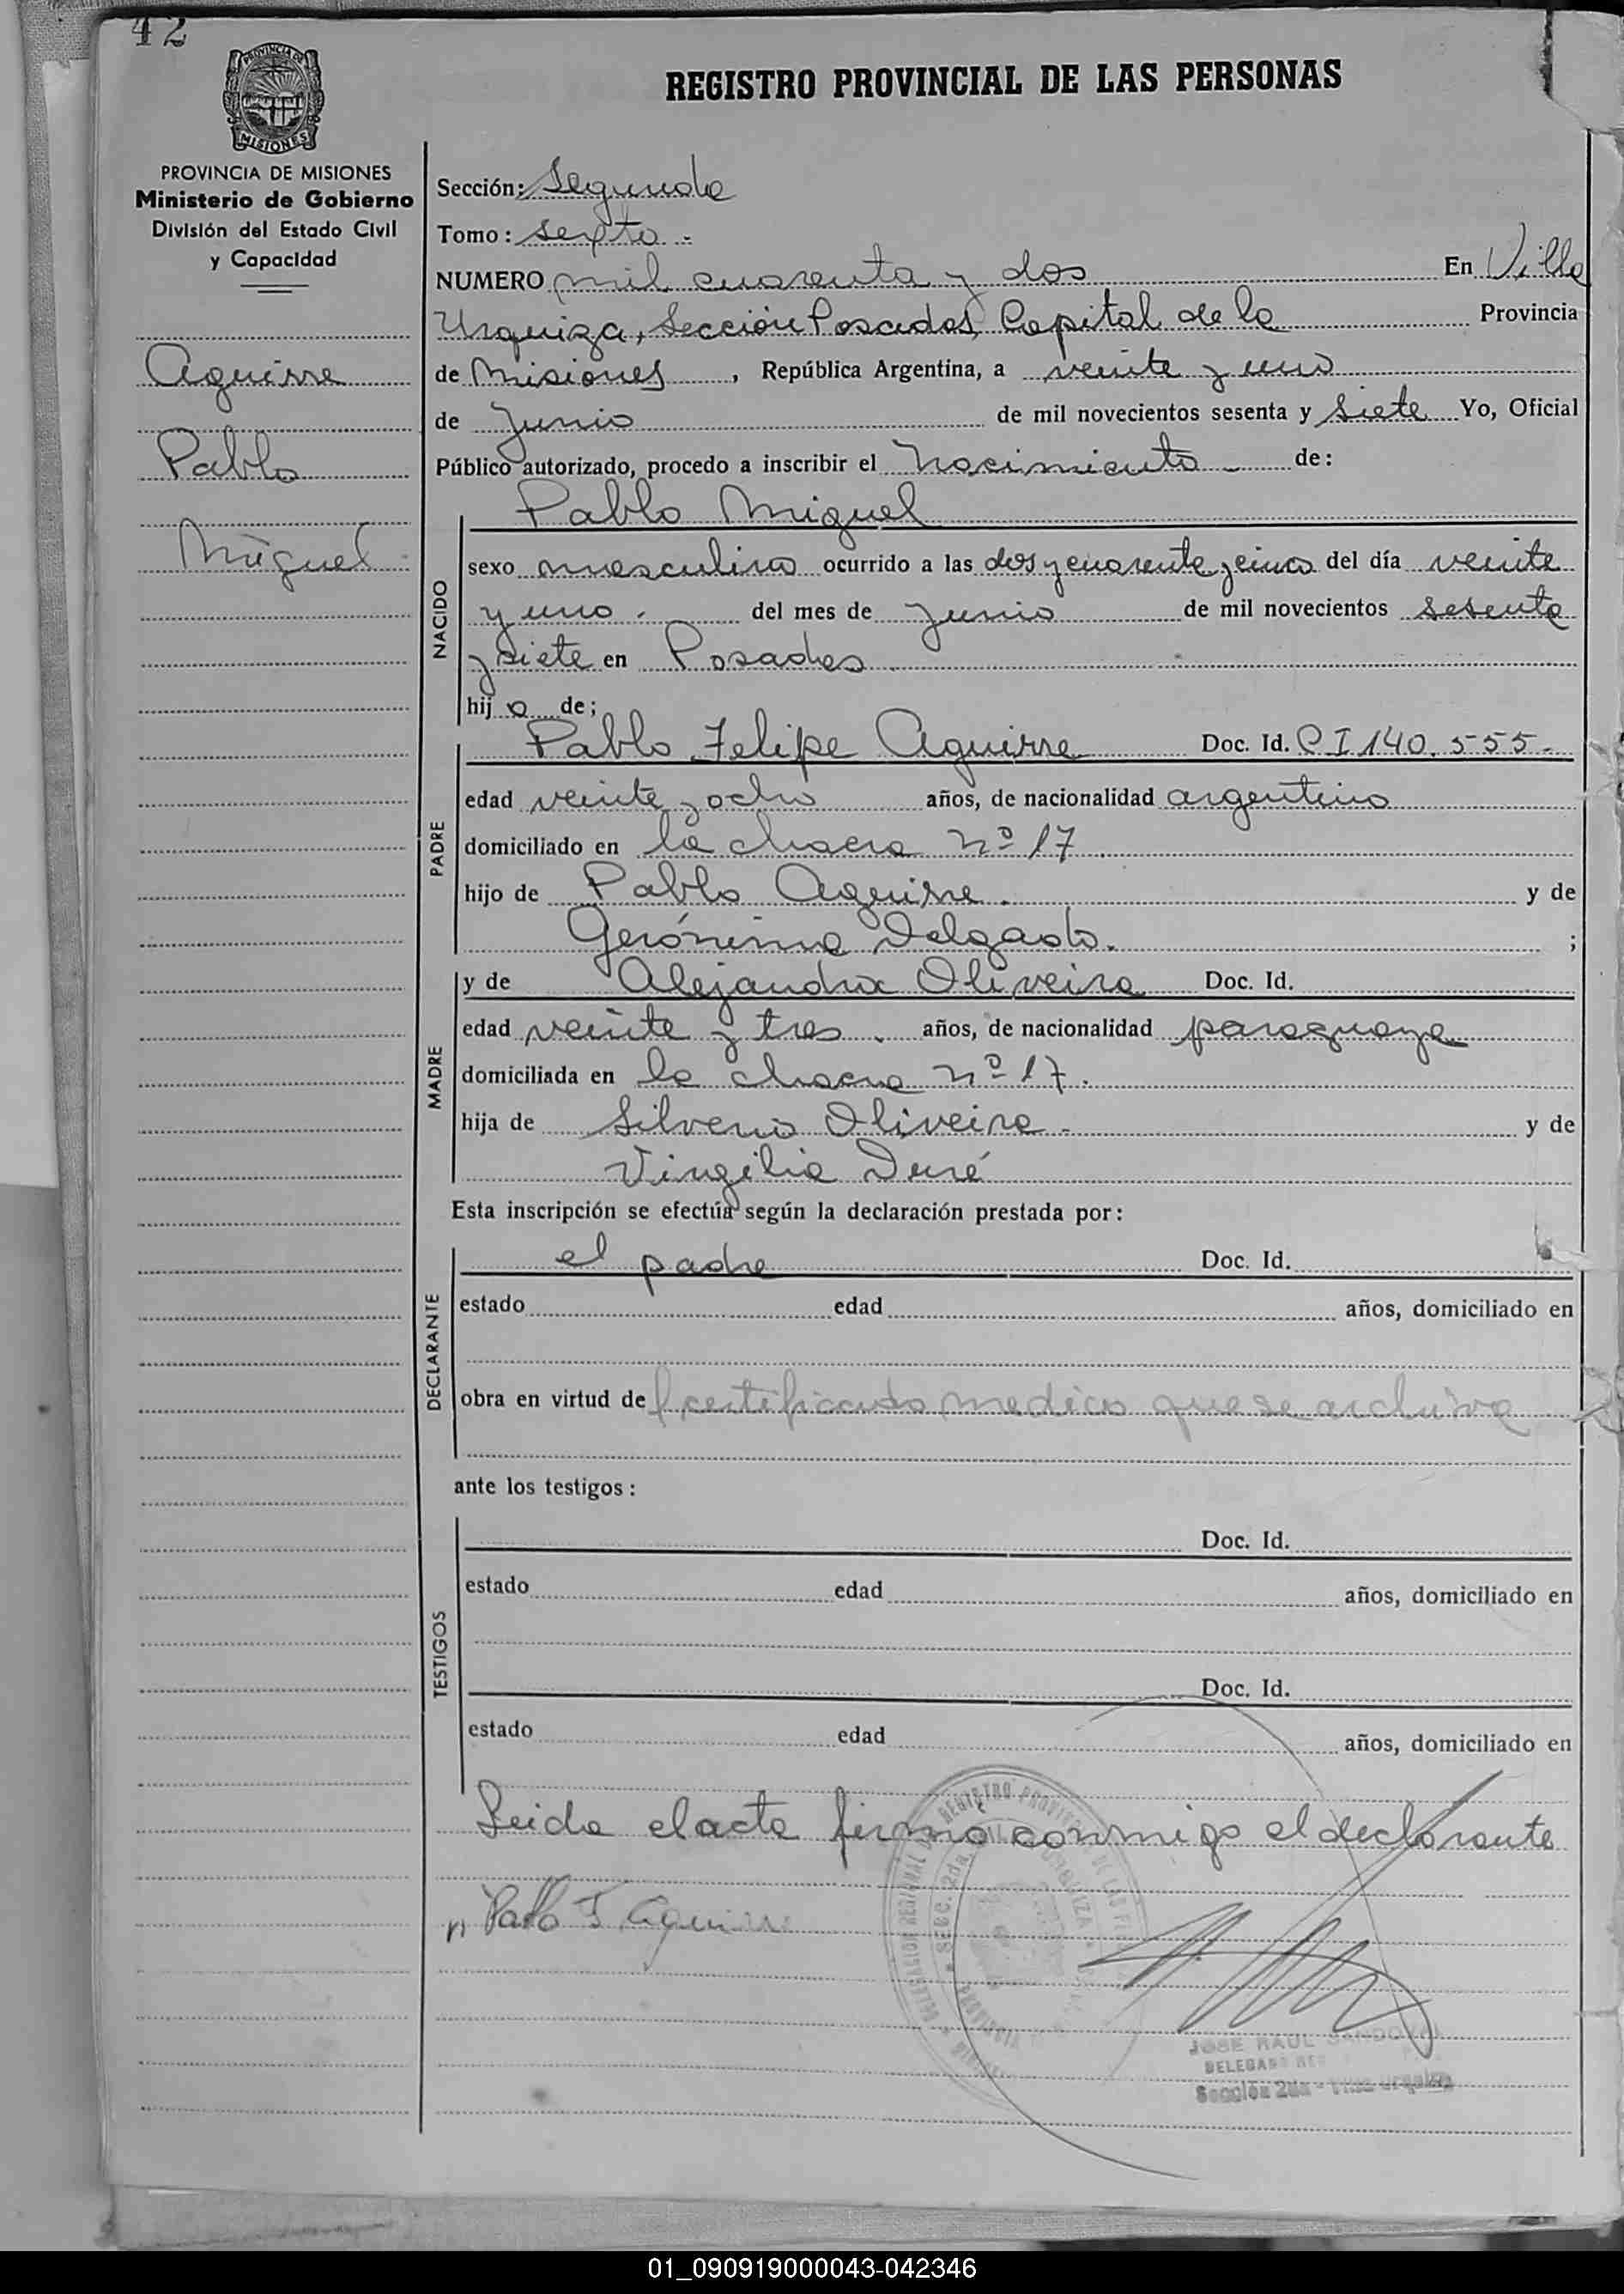 42
PROVINCIA DE
MISIONES
PROVINCIA DE MISIONES
Ministerio de Gobierno
División del Estado Civil
y Capacidad
Aguirre
Pablo
Miguel
REGISTRO PROVINCIAL DE LAS PERSONAS
Sección: Segunda
Tomo: sexto
NUMERO mil cuarenta y dos En Villa
Urquiza, Sección Posadas, Capital de la Provincia
de Misiones, República Argentina, a veinte y uno
de Junio de mil novecientos sesenta y siete Yo, Oficial
Público autorizado, procedo a inscribir el nacimiento de:
Pablo Miguel
NACIDO
sexo masculino ocurrido a las dos y cuarenta y cinco del día veinte
y uno del mes de Junio de mil novecientos sesenta
y siete en Posadas
hijo de;
PADRE
Pablo Felipe Aguirre Doc. Id. C I 140.555-
edad veinte y ocho años, de nacionalidad argentino
domiciliado en la chacra nº 17
hijo de Pablo Aguirre. y de
Gerónima Delgado. ;
MADRE
y de Alejandra Oliveira Doc. Id.
edad veinte y tres. años, de nacionalidad paraguaya
domiciliada en la chacra nº 17.
hija de Silverio Oliveira - y de
Virgilia Duré
Esta inscripción se efectúa según la declaración prestada por:
DECLARANTE
el padre Doc. Id.
estado edad años, domiciliado en
obra en virtud del certificado medico que se archiva
ante los testigos:
TESTIGOS
Doc. Id.
estado edad años, domiciliado en
Doc. Id.
estado edad años, domiciliado en
Leida el acta firmó conmigo el declarante
Pablo F. Aguirre
DELEGACION REGIONAL REGISTRO PROVINCIAL DE LAS
Secc. 2da. URQUIZA
JOSE RAUL SANDOVAL
Sección 2da - Villa Urquiza
01_090919000043-042346